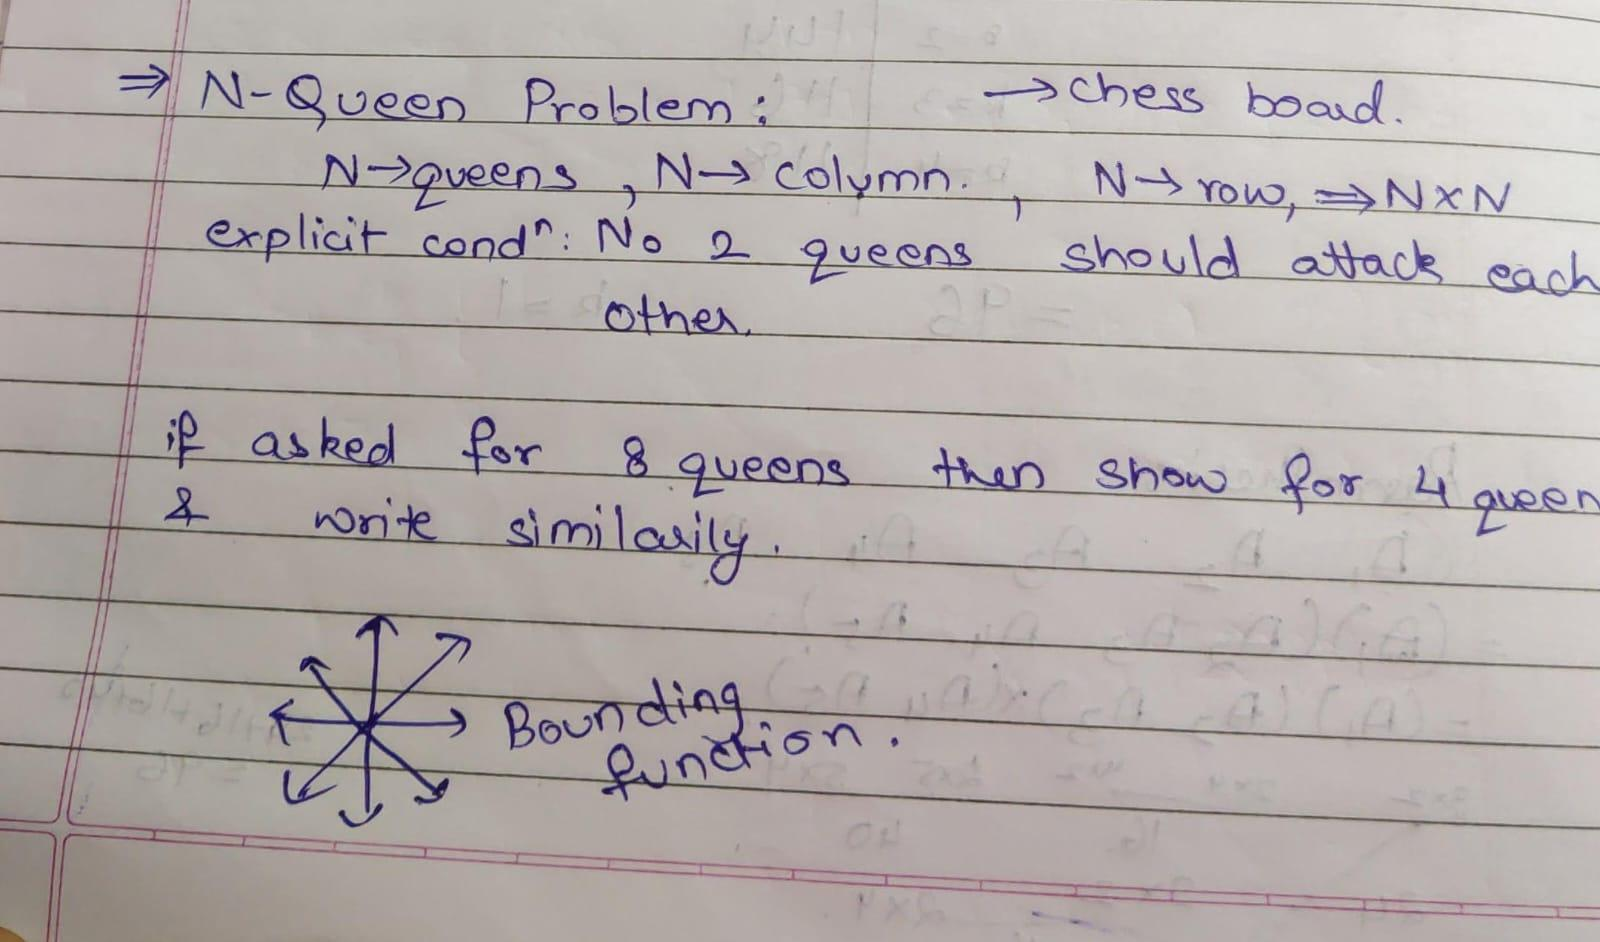 ⇒ N-Queen Problem: → chess board.
N→queens, N→ column., N→ row, ⇒ N×N
explicit condⁿ: No 2 queens should attack each
other.
if asked for 8 queens then show for 4 queen
& write similarily.
Bounding
function.